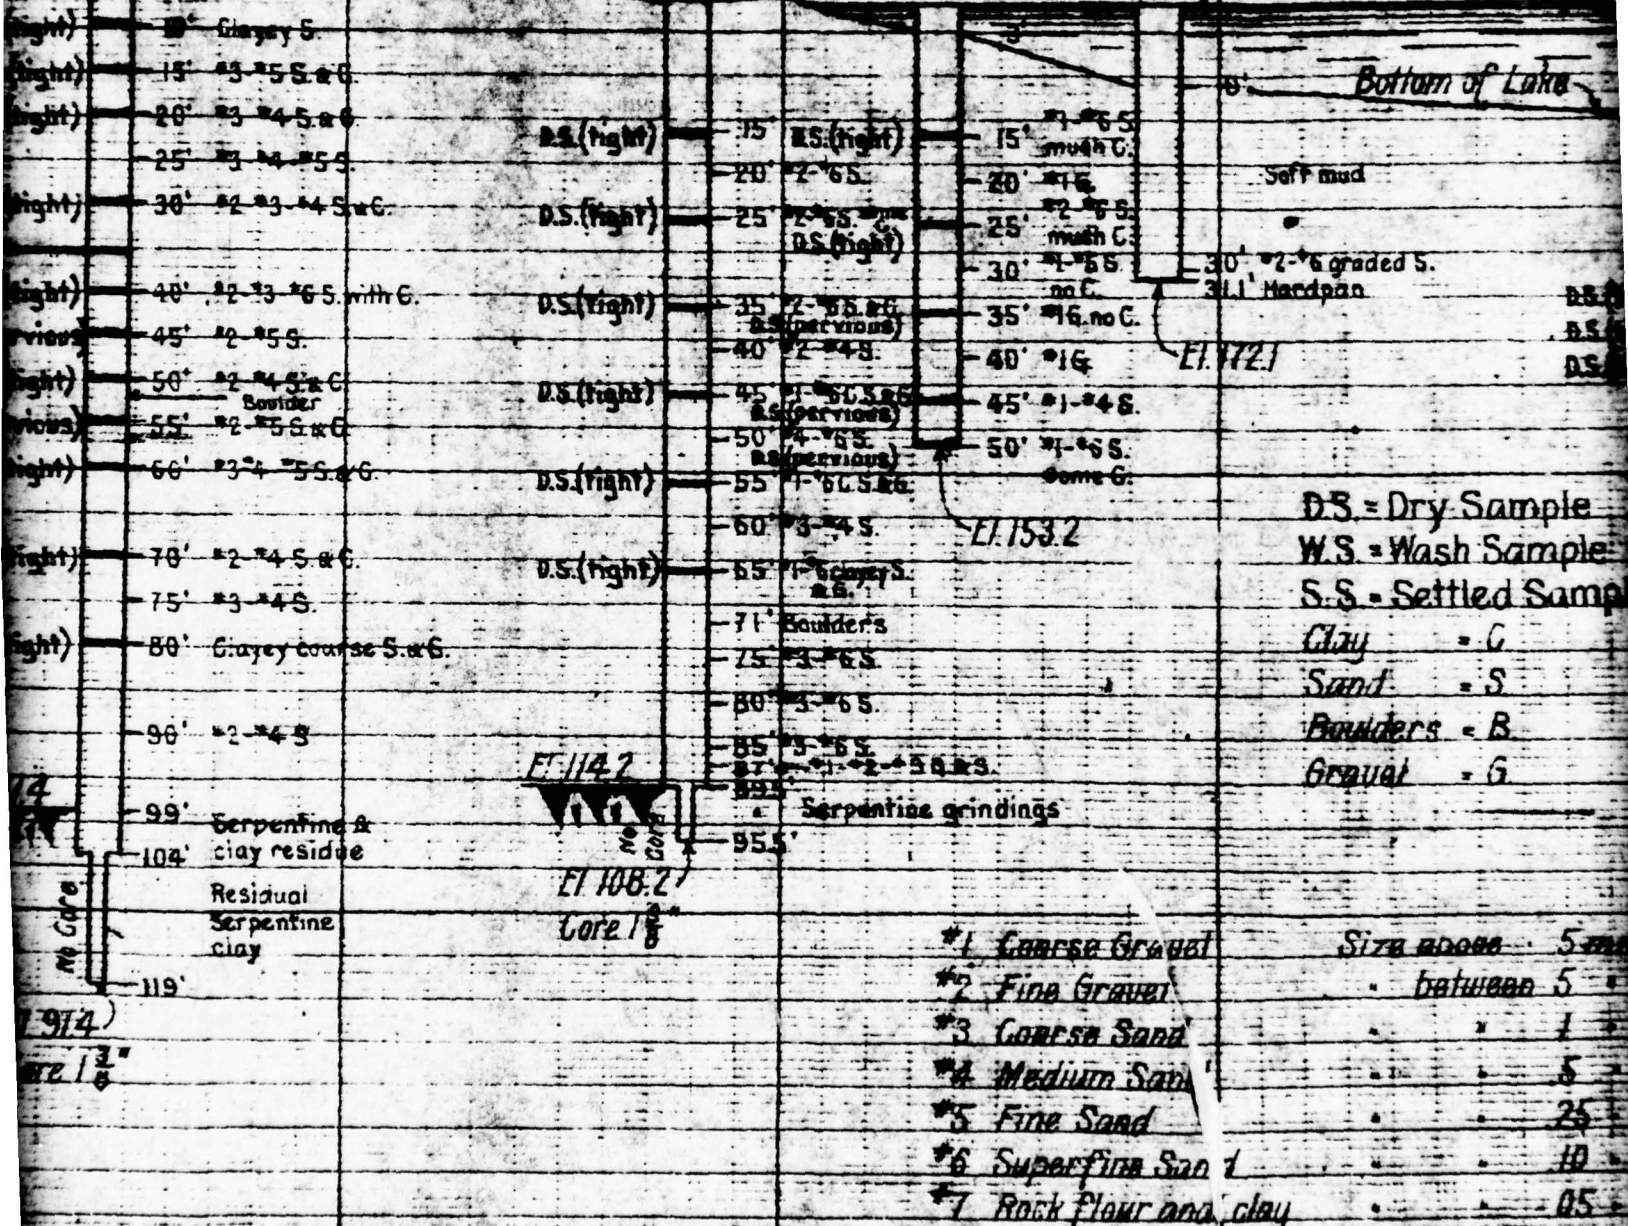 10' Clayey S.
15' #3-#5 S. & G.
20' #3-#4 S. & G.
25' #3-#4-#5 S.
30' #2-#3-#4 S. & C.
40' #2-#3-#6 S. with C.
45' #2-#5 S.
50' #2-#4 S. & C
Boulder
55' #2-#5 S. & G
60' #3-4-#5 S. & G.
70' #2-#4 S. & C.
75' #3-#4 S.
80' Clayey course S. & G.
90' #2-#4 S
99'
Serpentine &
104' clay residue
No Core
Residual
Serpentine
clay
119'
91.4
Core 1 3/8"
D.S. (tight) 15'
20' #2-#6 S.
D.S. (tight) 25'
D.S. (tight) 35' #2-#6 S. & G.
40' #2-#4 S.
D.S. (tight) 45'
50' #4-#6 S.
D.S. (tight) 55'
60' #3-#4 S.
D.S. (tight) 65' #1-#6 clayey S.
& G.
71' Boulders
75' #3-#6 S.
80' #3-#6 S.
85' #3-#6 S.
El. 114.2
89.5'
Serpentine grindings
No Core
95.5'
El. 108.2
Core 1 3/8"
D.S. (tight) 15' #1-#6 S.
much C.
20' #1 G.
25' #2-#6 S.
D.S. (tight) much C.
30' #1-#6 S.
no C.
D.S. (pervious) 35' #1 G. no C.
40' #1 G
D.S. (pervious) 45' #1-#4 S.
D.S. (pervious) 50' #1-#6 S.
some G.
El. 153.2
Bottom of Lake
Soft mud
30' #2-#6 graded S.
31.1' Hardpan
El. 172.1
D.S.
D.S.
D.S.
D.S. = Dry Sample
W.S. = Wash Sample
S.S. = Settled Samp
Clay = C
Sand = S
Boulders = B
Gravel = G
#1 Coarse Gravel Size above 5 m
#2 Fine Gravel " between 5 "
#3 Coarse Sand " " 1 "
#4 Medium Sand " " .5 "
#5 Fine Sand " " .25 "
#6 Superfine Sand " " .10 "
#7 Rock flour and clay " " .05 "